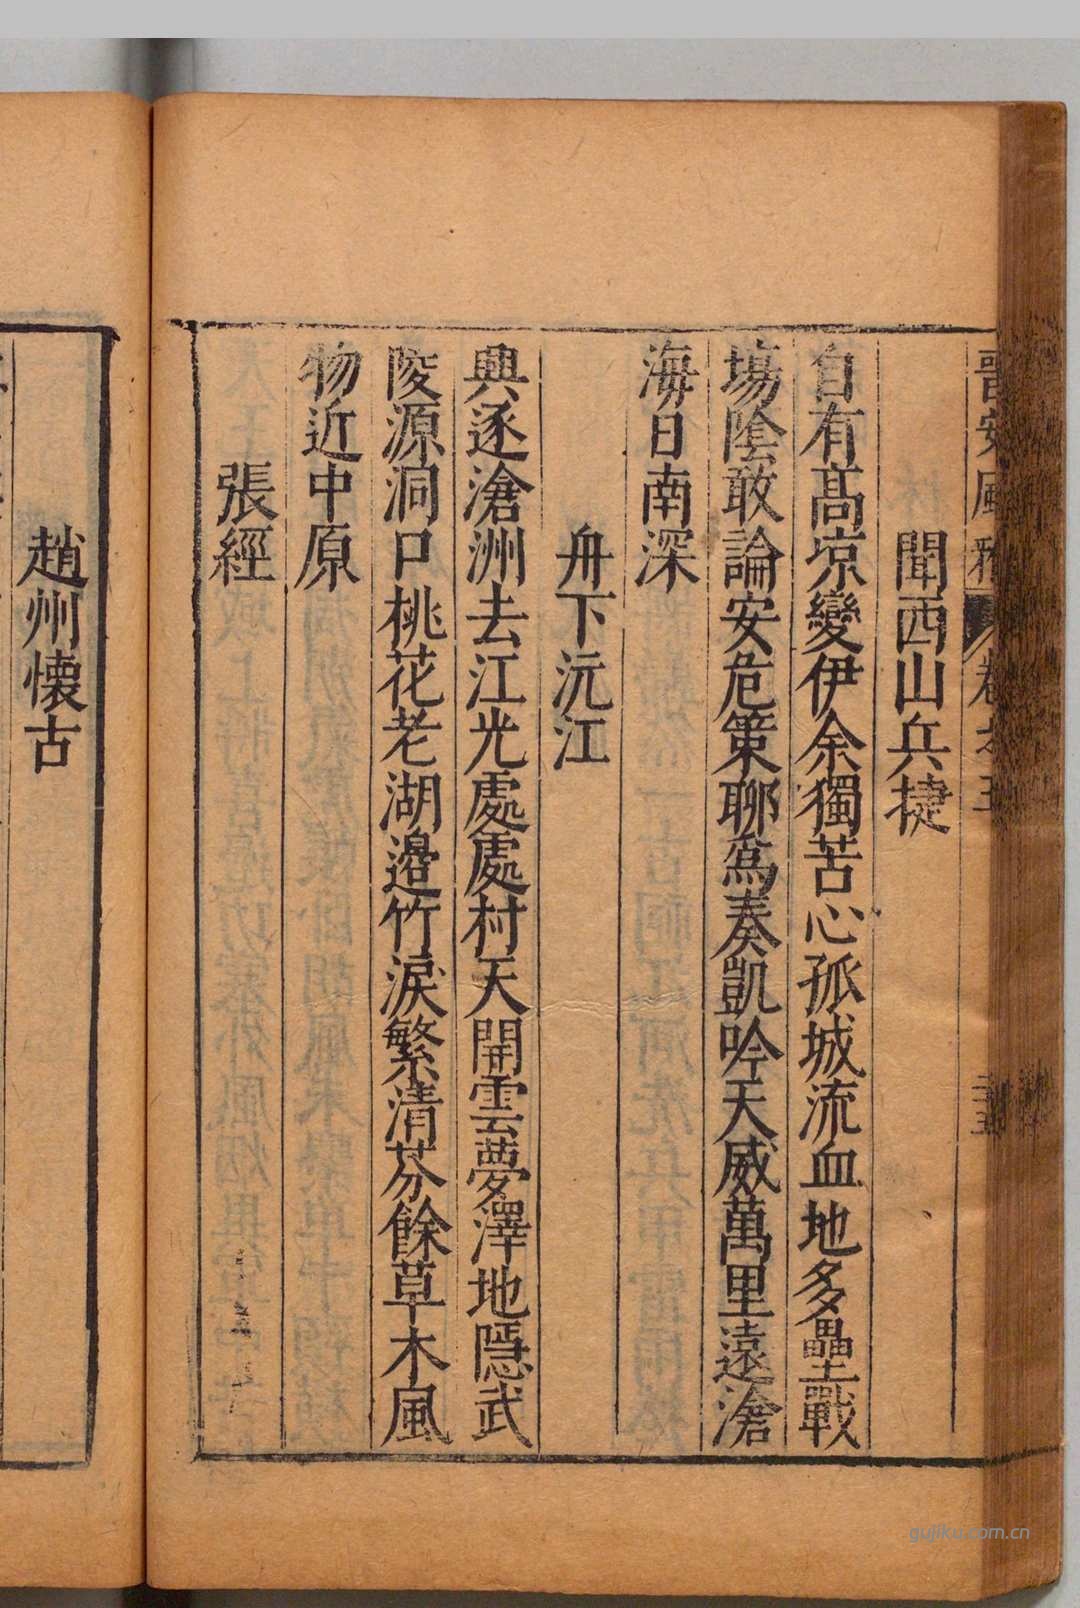 晉安風雅 卷之五 三五
聞西山兵捷
自有高凉變伊余獨苦心孤城流血地多壘戰
塲陰敢論安危策聊爲奏凱吟天威萬里遠滄
海日南深
舟下沅江
興逐滄洲去江光處處村天開雲夢澤地隱武
陵源洞口桃花老湖邉竹淚繁清芬餘草木風
物近中原
張經
趙州懷古
gujiku.com.cn